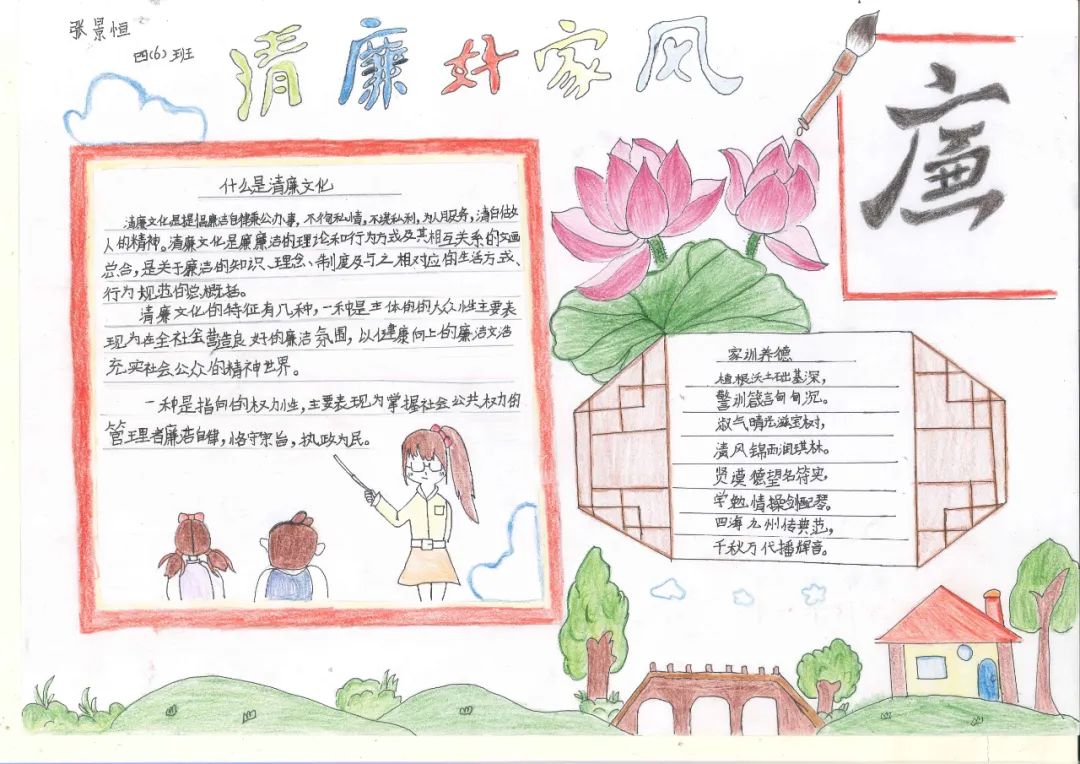 张景恒
四(6)班
清廉好家风
廉
什么是清廉文化
清廉文化是提倡廉洁自律秉公办事，不徇私情，不谋私利，为人民服务，清白做
人的精神。清廉文化是廉廉洁的理论和行为方式及其相互关系的文画
总合，是关于廉洁的知识、理念、制度及与之相对应的生活方式、
行为规范的总概括。
清廉文化的特征有几种，一种是主体的的大众性主要表
现为在全社会营造良好的廉洁氛围，以健康向上的廉洁文洁
充实社会公众的精神世界。
一种是指向的权力性，主要表现为掌握社会公共权力的
管理者廉洁自律，恪守宗旨，执政为民。
家训养德
植根沃土础基深，
警训箴言旬旬沉。
淑气晴光滋宝树，
清风锦雨润琪林。
贤谟德望名符实，
学勉情操剑配琴。
四海九州传典范，
千秋万代播辉音。